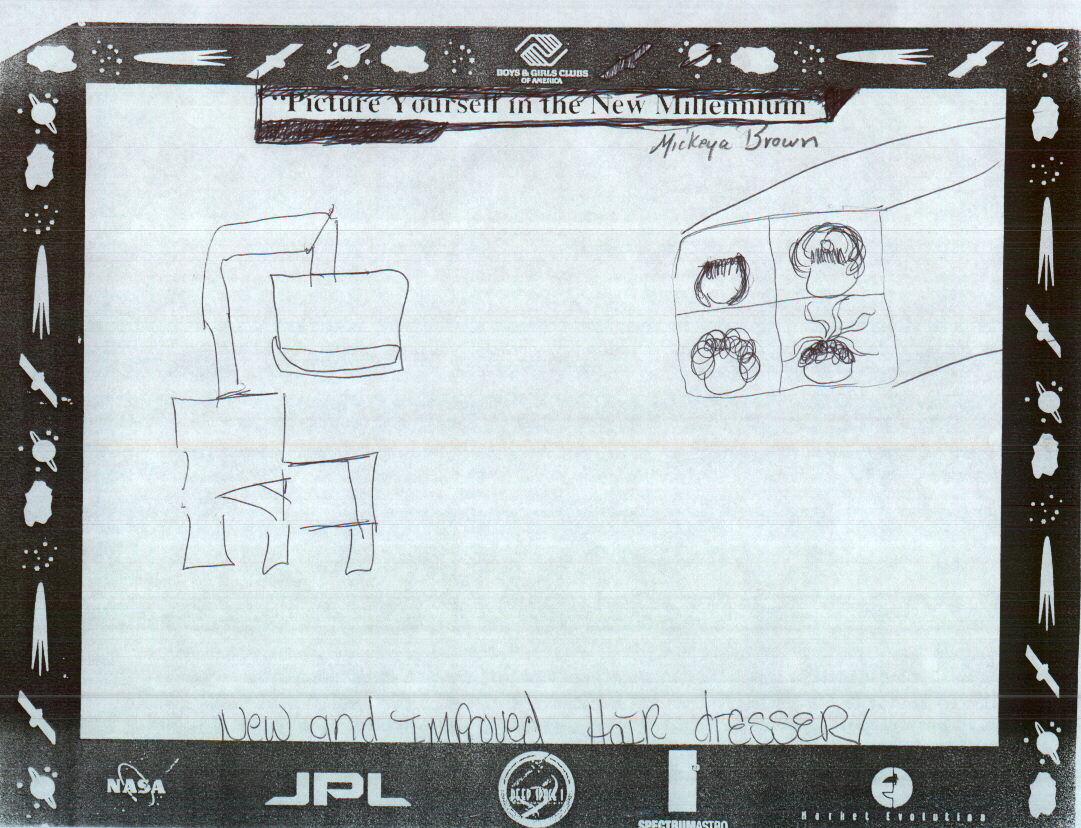 BOYS & GIRLS CLUBS
OF AMERICA
"Picture Yourself in the New Millennium"
Mickeya Brown
New and improved Hair dresser
NASA
JPL
DEEP SPACE 1
SPECTRUMASTRO
Market Evolution